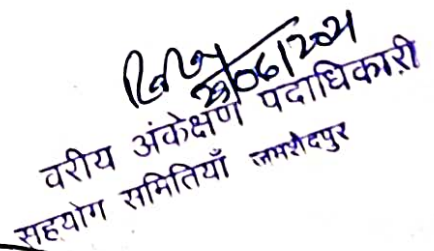 29/06/2021
वरीय अंकेक्षण पदाधिकारी
सहयोग समितियाँ जमशेदपुर